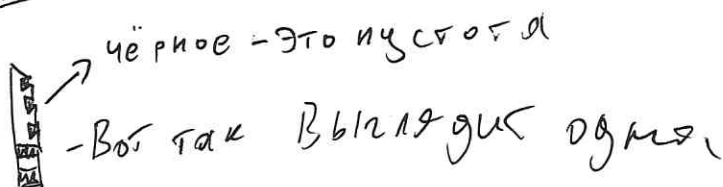 чёрное - Это пустота
- Вот так Выглядит одна,